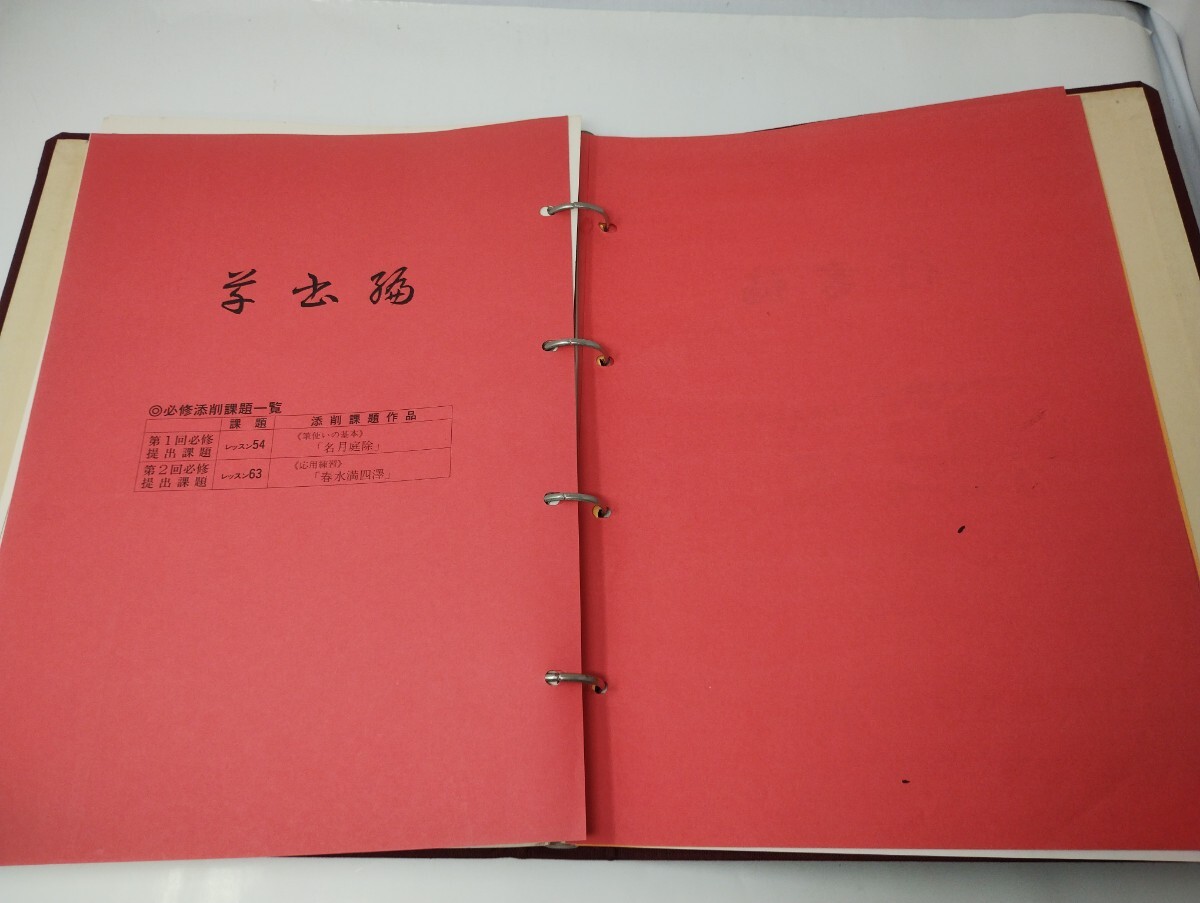 草書編
◎必修添削課題一覧
課題 添削課題作品
第1回必修提出課題 レッスン54 《筆使いの基本》「名月庭除」
第2回必修提出課題 レッスン63 《応用練習》「春水満四澤」